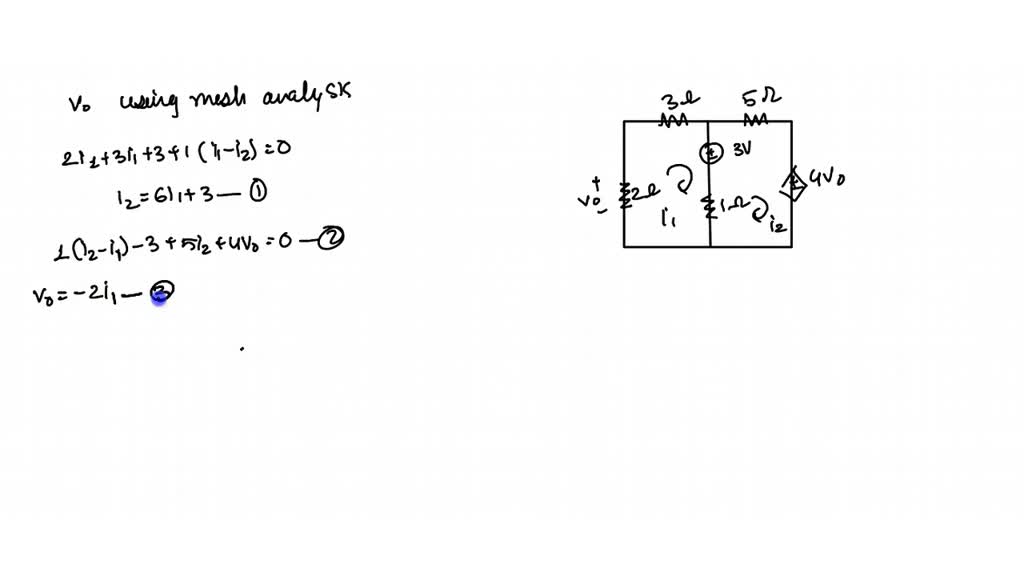 V₀ using mesh analysis
2i₁+3i₁+3+1(i₁-i₂)=0
i₂=6i₁+3—①
1(i₂-i₁)-3+5i₂+4V₀=0—②
V₀=-2i₁—③
3Ω 5Ω
3V
+ V₀ - 2Ω i₁ 1Ω i₂ + 4V₀